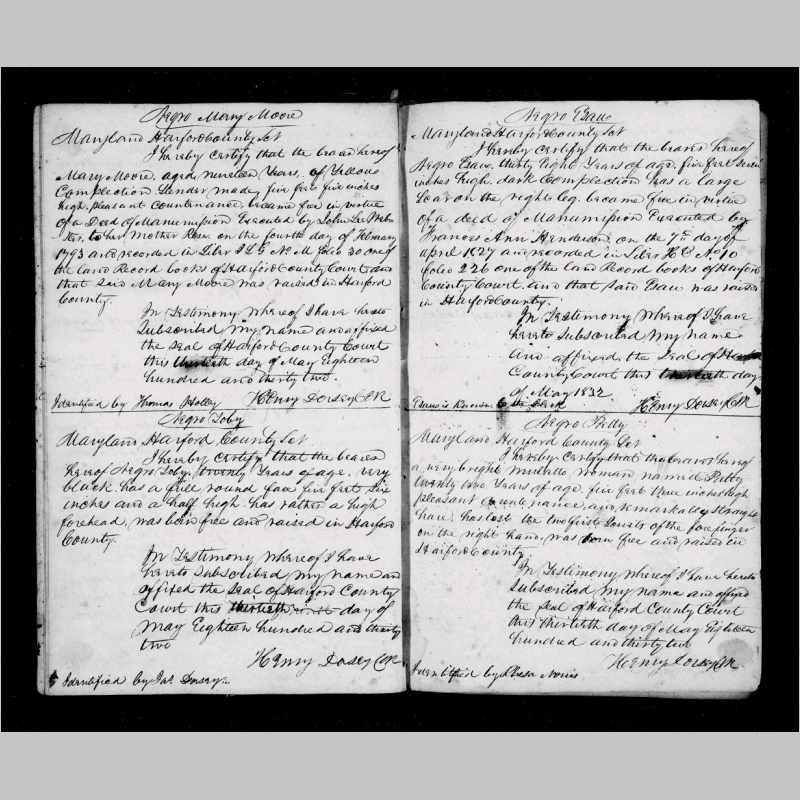 Negro Mary Moore
Maryland Harford County Sct
I hereby certify that the bearer hereof
Mary Moore aged nineteen Years, of Yellow
Complection Slender made, five feet five inches
high pleasant Countenance became free in virtue
of a Deed of Manumission Executed by John Lee Webs
ter to her Mother Rose on the fourth day of February
1793 and recorded in Liber J L G No M folio 30 one of
the land Record books of Harford County Court and
that said Mary Moore was raised in Harford
County.
In Testimony whereof I have hereto
Subscribed my name and affixed
the Seal of Harford County Court
this thirtieth day of May Eighteen
hundred and thirty two.
Identified by Thomas Holley Henry Dorsey Clk
Negro Toby
Maryland Harford County Sct
I hereby certify that the bearer
hereof Negro Toby, twenty Years of age, very
black has a full round face five feet Six
inches and a half high has rather a high
forehead, was born free and raised in Harford
County.
In Testimony whereof I have
hereto Subscribed my name and
affixed the Seal of Harford County
Court this thirtieth day of
May Eighteen hundred and thirty
two
Henry Dorsey Clk
Identified by Jas. Dorsey
Negro Esau
Maryland Harford County Sct
I hereby certify that the bearer hereof
Negro Esau, thirty Eight Years of age, five feet Seven
inches high, dark Complection has a large
Scar on the right leg. became free in virtue
of a deed of Manumission Executed by
Frances Ann Henderson on the 7th day of
april 1827 and recorded in Liber H C No 10
folio 226 one of the land Record books of Harford
County Court and that said Esau was raised
in Harford County.
In Testimony whereof I have
hereto Subscribed my name
and affixed the Seal of
County Court this thirtieth day
of May 1832
Esau is Known to the Clerk Henry Dorsey Clk
Negro Petty
Maryland Harford County Sct
I hereby Certify that the bearer hereof
a very bright mulatto woman named Petty
twenty two Years of age, five feet three inches high
pleasant Countenance, and remarkably Straight
hair, has lost the two first Joints of the fore finger
on the right hand, was born free and raised in
Harford County.
In Testimony whereof I have hereto
Subscribed my name and affixed
the Seal of Harford County Court
this thirtieth day of May Eighteen
hundred and thirty two
Henry Dorsey Clk
Identified by Norris